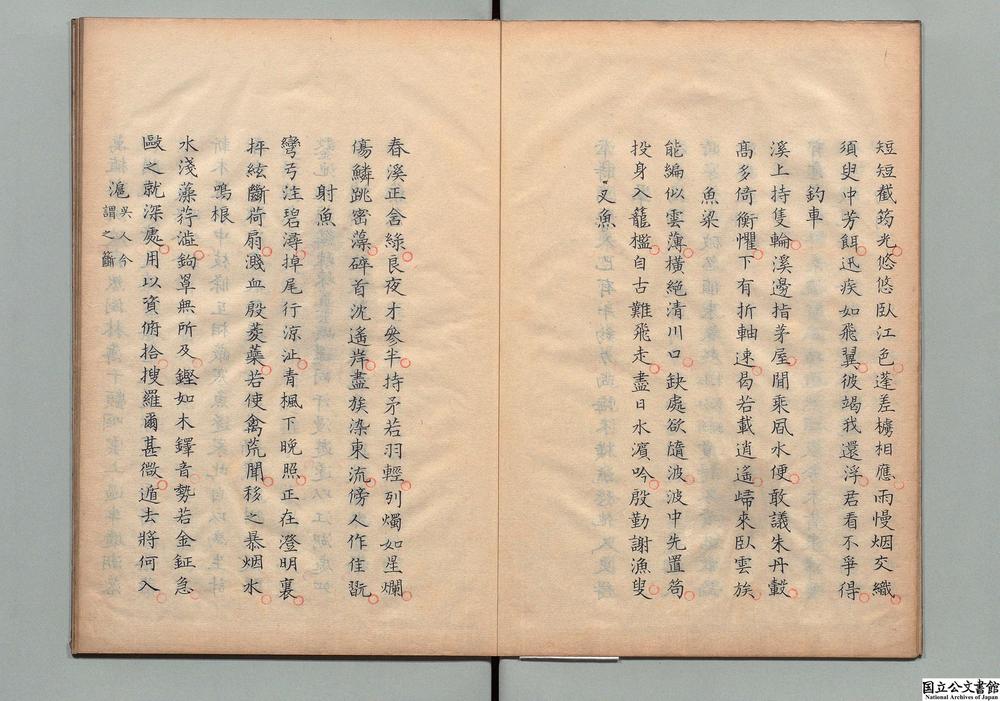 短短截筠光悠悠臥江色蓬差櫓相應雨慢烟交織
須臾中芳餌迅疾如飛翼彼竭我還浮君看不爭得
釣車
溪上持隻輪溪邊指茅屋閒乘風水便敢議朱丹轂
髙多倚衡懼下有折軸速曷若載逍遥歸來臥雲族
魚梁
能編似雲薄橫絶清川口缺處欲隨波波中先置笱
投身入籠檻自古難飛走盡日水濱吟殷勤謝漁叟
叉魚
春溪正含緑良夜才參半持矛若羽輕列燭如星爛
傷鱗跳密藻碎首沈遥岸盡族染東流傍人作佳翫
射魚
彎弓注碧潯掉尾行涼沚青楓下晚照正在澄明裏
抨絃斷荷扇濺血殷菱蘂若使禽荒聞移之暴烟水
鳴根
水淺藻荇澁鉤罩無所及鏗如木鐸音勢若金鉦急
敺之就深處用以資俯拾搜羅爾甚微遁去將何入
滬吳人今謂之籪
国立公文書館
National Archives of Japan